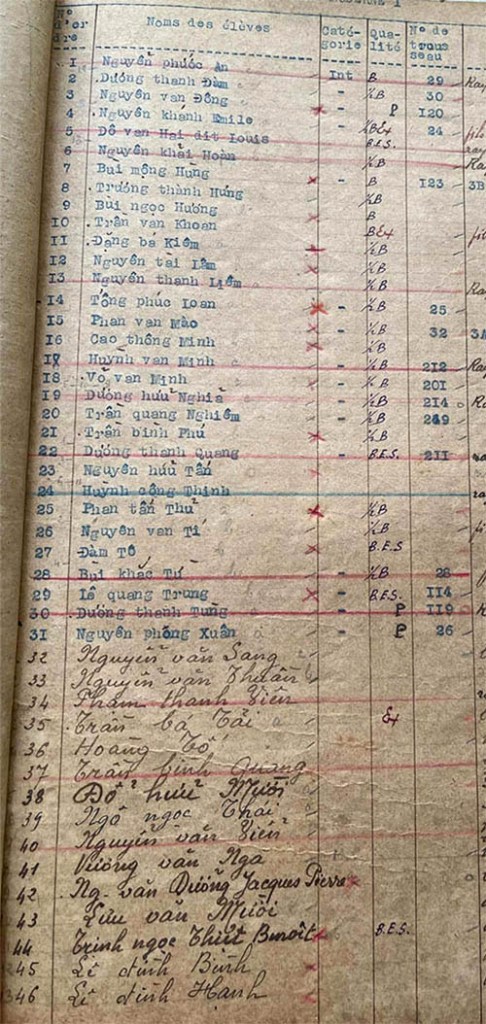 N° d'ordre Noms des élèves Catégorie Qualité N° de trousseau
1 Nguyễn phước An
2 Dương thanh Đàm Int B 29
3 Nguyễn van Đông - ½B 30
4 Nguyễn khanh Emile x - P 120
5 Đỗ van Hai dit Louis - ½BEx 24
6 Nguyễn khải Hoàn B.E.S.
7 Bùi mộng Hùng ½B
8 Trương thành Hưng x - B 123 3B
9 Bùi ngọc Hương ½B
10 Trần van Khoan B
11 Đặng bá Kiêm BEx
12 Nguyễn tài Lâm x ½B
13 Nguyễn thanh Liêm x ½B
14 Tống phúc Loan x - ½B 25
15 Phan van Mào
16 Cao thông Minh x - ½B 32
17 Huỳnh van Minh x - ½B 212
18 Võ van Minh - ½B 201
19 Dương hưu Nghia - ½B 214
20 Trần quang Nghiêm - ½B 249
21 Trần bình Phú x ½B
22 Dương thanh Quang - B.E.S. 211
23 Nguyễn hưu Tấn
24 Huỳnh công Thinh
25 Phan tấn Thử x ½B
26 Nguyễn van Tí ½B
27 Đàm Tô x B.E.S
28 Bùi khắc Tư - ½B 28
29 Lê quang Trung x - B.E.S. 114
30 Dương thanh Tung - P 119
31 Nguyễn phông Xuân - P 26
32 Nguyễn văn Sang
33 Nguyễn văn Thuần
34 Phạm thanh Viên
35 Trần bá Tài Ex
36 Hoàng Tố
37 Trần bình Quang
38 Đỗ hưu Mười
39 Ngô ngọc Thái
40 Nguyễn văn Viên
41 Vương văn Nga
42 Ng. văn Dương Jacques Pierre x
43 Lưu văn Mười
44 Trịnh ngọc Thiết Benoît x B.E.S.
45 Lê đình Bình x
46 Lê đình Hạnh x